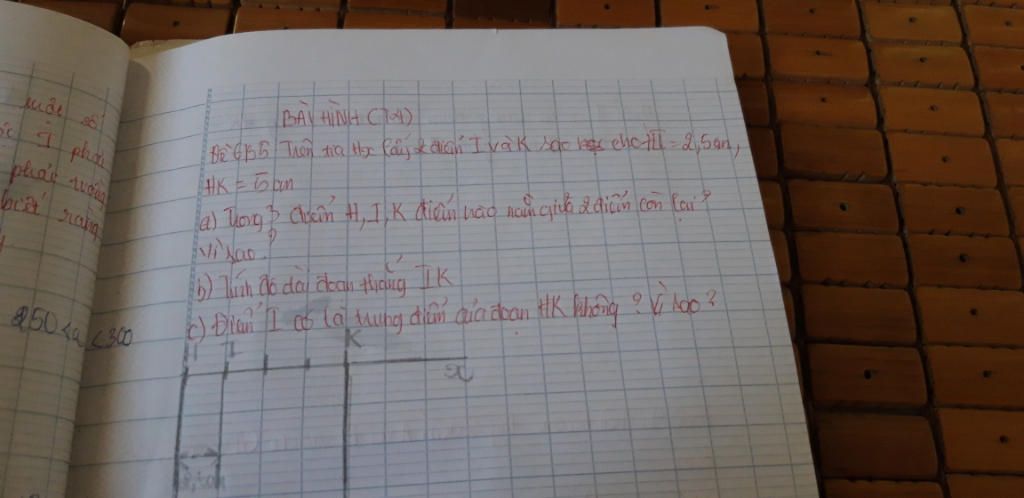 BÀI HÌNH (T4)
Đề 6B5 Trên tia Hx lấy 2 điểm I và K sao cho HI = 2,5cm,
HK = 5cm
a) Trong 3 điểm H, I, K điểm nào nằm giữa 2 điểm còn lại?
Vì sao?
b) Tính độ dài đoạn thẳng IK
c) Điểm I có là trung điểm của đoạn HK không? Vì sao?
I K
x
số
I phải
phải
biết rằng
250 < a < 300